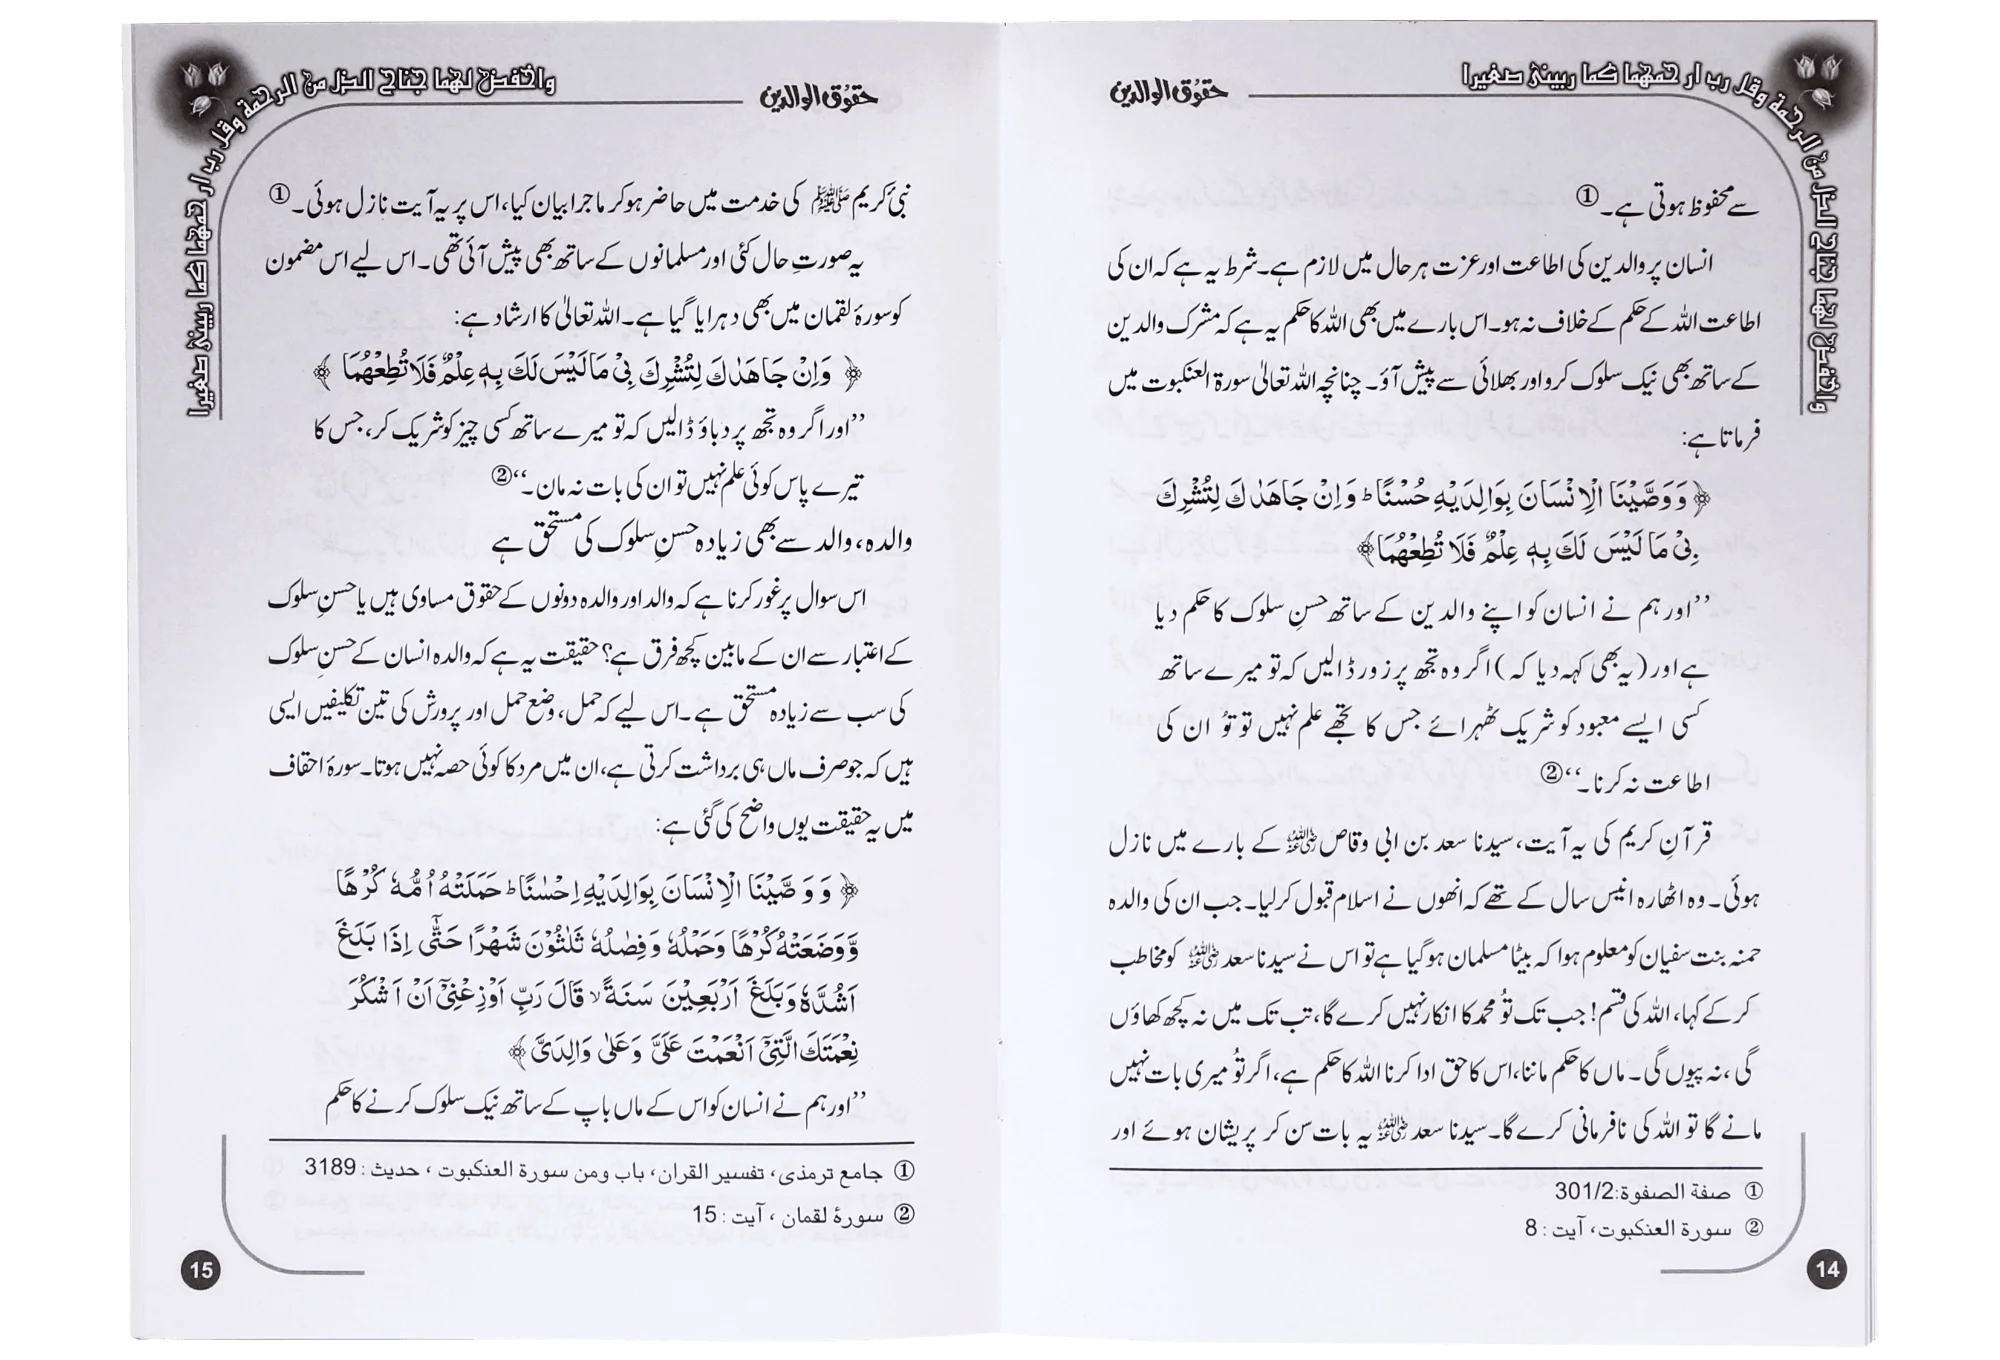 واخفض لهما جناح الذل من الرحمة وقل رب ارحمهما كما ربيني صغيرا
حقوق الوالدین
سے محفوظ ہوتی ہے۔①
انسان پر والدین کی اطاعت اور عزت ہر حال میں لازم ہے۔ شرط یہ ہے کہ ان کی
اطاعت اللہ کے حکم کے خلاف نہ ہو۔ اس بارے میں بھی اللہ کا حکم یہ ہے کہ مشرک والدین
کے ساتھ بھی نیک سلوک کرو اور بھلائی سے پیش آؤ۔ چنانچہ اللہ تعالیٰ سورۃ العنکبوت میں
فرماتا ہے:
﴿ وَ وَصَّيْنَا الْاِنْسَانَ بِوَالِدَيْهِ حُسْنًا ؕ وَ اِنْ جَاهَدٰكَ لِتُشْرِكَ
بِيْ مَا لَيْسَ لَكَ بِهٖ عِلْمٌ فَلَا تُطِعْهُمَا﴾
’’اور ہم نے انسان کو اپنے والدین کے ساتھ حسنِ سلوک کا حکم دیا
ہے اور (یہ بھی کہہ دیا کہ) اگر وہ تجھ پر زور ڈالیں کہ تو میرے ساتھ
کسی ایسے معبود کو شریک ٹھہرائے جس کا تجھے علم نہیں تو تُو ان کی
اطاعت نہ کرنا۔‘‘②
قرآنِ کریم کی یہ آیت، سیدنا سعد بن ابی وقاص رضی اللہ عنہ کے بارے میں نازل
ہوئی۔ وہ اٹھارہ انیس سال کے تھے کہ انھوں نے اسلام قبول کرلیا۔ جب ان کی والدہ
حمنہ بنت سفیان کو معلوم ہوا کہ بیٹا مسلمان ہو گیا ہے تو اس نے سیدنا سعد رضی اللہ عنہ کو مخاطب
کر کے کہا، اللہ کی قسم! جب تک تُو محمد کا انکار نہیں کرے گا، تب تک میں نہ کچھ کھاؤں
گی، نہ پیوں گی۔ ماں کا حکم ماننا، اس کا حق ادا کرنا اللہ کا حکم ہے، اگر تُو میری بات نہیں
مانے گا تو اللہ کی نافرمانی کرے گا۔ سیدنا سعد رضی اللہ عنہ یہ بات سن کر پریشان ہوئے اور
① صفة الصفوة:301/2
② سورة العنکبوت، آیت : 8
14
واخفض لهما جناح الذل من الرحمة وقل رب ارحمهما كما ربيني صغيرا
حقوق الوالدین
نبیٔ کریم ﷺ کی خدمت میں حاضر ہو کر ماجرا بیان کیا، اس پر یہ آیت نازل ہوئی۔①
یہ صورتِ حال کئی اور مسلمانوں کے ساتھ بھی پیش آئی تھی۔ اس لیے اس مضمون
کو سورۂ لقمان میں بھی دہرایا گیا ہے۔ اللہ تعالیٰ کا ارشاد ہے:
﴿ وَاِنْ جَاهَدٰكَ لِتُشْرِكَ بِيْ مَا لَيْسَ لَكَ بِهٖ عِلْمٌ فَلَا تُطِعْهُمَا ﴾
’’اور اگر وہ تجھ پر دباؤ ڈالیں کہ تو میرے ساتھ کسی چیز کو شریک کر، جس کا
تیرے پاس کوئی علم نہیں تو ان کی بات نہ مان۔‘‘②
والدہ، والد سے بھی زیادہ حسنِ سلوک کی مستحق ہے
اس سوال پر غور کرنا ہے کہ والد اور والدہ دونوں کے حقوق مساوی ہیں یا حسنِ سلوک
کے اعتبار سے ان کے مابین کچھ فرق ہے؟ حقیقت یہ ہے کہ والدہ انسان کے حسنِ سلوک
کی سب سے زیادہ مستحق ہے۔ اس لیے کہ حمل، وضع حمل اور پرورش کی تین تکلیفیں ایسی
ہیں کہ جو صرف ماں ہی برداشت کرتی ہے، ان میں مرد کا کوئی حصہ نہیں ہوتا۔ سورۂ احقاف
میں یہ حقیقت یوں واضح کی گئی ہے:
﴿ وَ وَصَّيْنَا الْاِنْسَانَ بِوَالِدَيْهِ اِحْسٰنًا ؕ حَمَلَتْهُ اُمُّهٗ كُرْهًا
وَّوَضَعَتْهُ كُرْهًا وَحَمْلُهٗ وَفِصٰلُهٗ ثَلٰثُوْنَ شَهْرًا حَتّٰۤى اِذَا بَلَغَ
اَشُدَّهٗ وَبَلَغَ اَرْبَعِيْنَ سَنَةً ۙ قَالَ رَبِّ اَوْزِعْنِيْۤ اَنْ اَشْكُرَ
نِعْمَتَكَ الَّتِيْۤ اَنْعَمْتَ عَلَيَّ وَعَلٰى وَالِدَيَّ ﴾
’’اور ہم نے انسان کو اس کے ماں باپ کے ساتھ نیک سلوک کرنے کا حکم
① جامع ترمذی، تفسیر القران، باب ومن سورة العنکبوت ، حدیث : 3189
② سورۂ لقمان ، آیت : 15
15